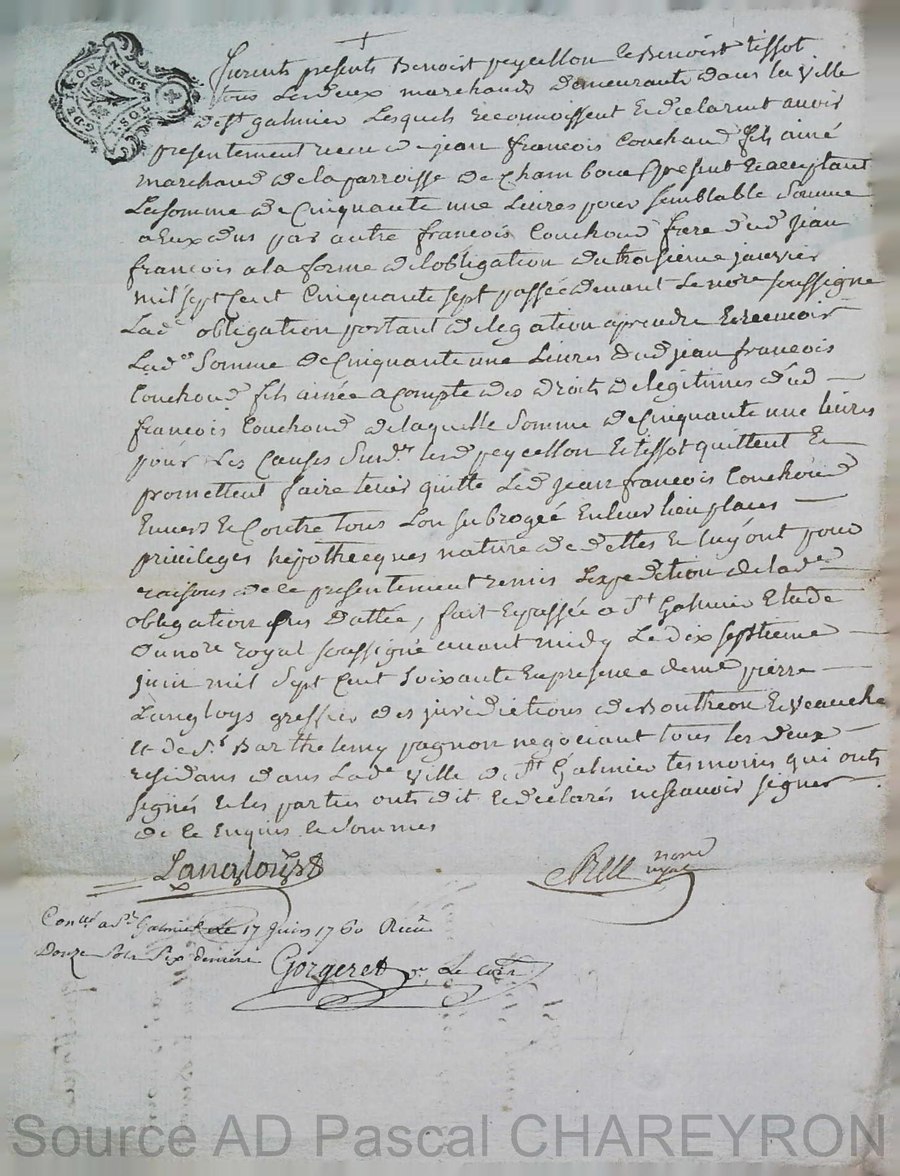 GEN. DE LYON
DEN
SOL
furents presents Benoist peycellon et Benoist tissot
tous Les deux marchands demeurants dans la ville
de st galmier Lesquels reconnoissent et declarent avoir
presentement receu de jean françois Couchoud fils ainé
marchand de la parroisse de Chambœuf present et acceptant
La somme de Cinquante une Livres pour semblable somme
a Eux dus par autre françois Couchoud frere dud jean
françois a la forme de lobligation du troisieme janvier
mil sept Cent Cinquante sept passée devant Le nore soussigne
Lade obligation portant delegation a prendre Et recevoir
Lade Somme de Cinquante une Livres dud jean françois
Couchoud fils ainée a compte des droits de legitimes dud
françois Couchoud de laquelle somme de Cinquante une livres
pour Les Causes Susds. lesd peycellon Et tissot quittent Et
promettent faire tenir quitte Led jean françois Couchoud
Envers Et Contre tous Lon subrogeé En leur lieu places
privileges hypothecques nature de dettes Et luy ont pour
raisons de ce presentement remis Lexpedition de lade
obligation sus dattée, fait Et passée a St Galmier Etude
Du nore royal soussigné avant midy Le dix septieme
juin mil sept Cent soixante En presence de me pierre
Langloys greffier des juridictions de Bouthéon Et Veauche
et de Sr. Barthelemy pagnon negociant tous les deux
residans dans Lade ville de St Galmier tesmoins qui onts
signés Et les parties onts dit Et declarés ne scavoir signer
de ce Enquis Et Sommes
Langloys
nore
royal
Conllé a St Galmier Le 17 juin 1760 Receu
Douze sols six deniers
Gorgeret
Source AD Pascal CHAREYRON